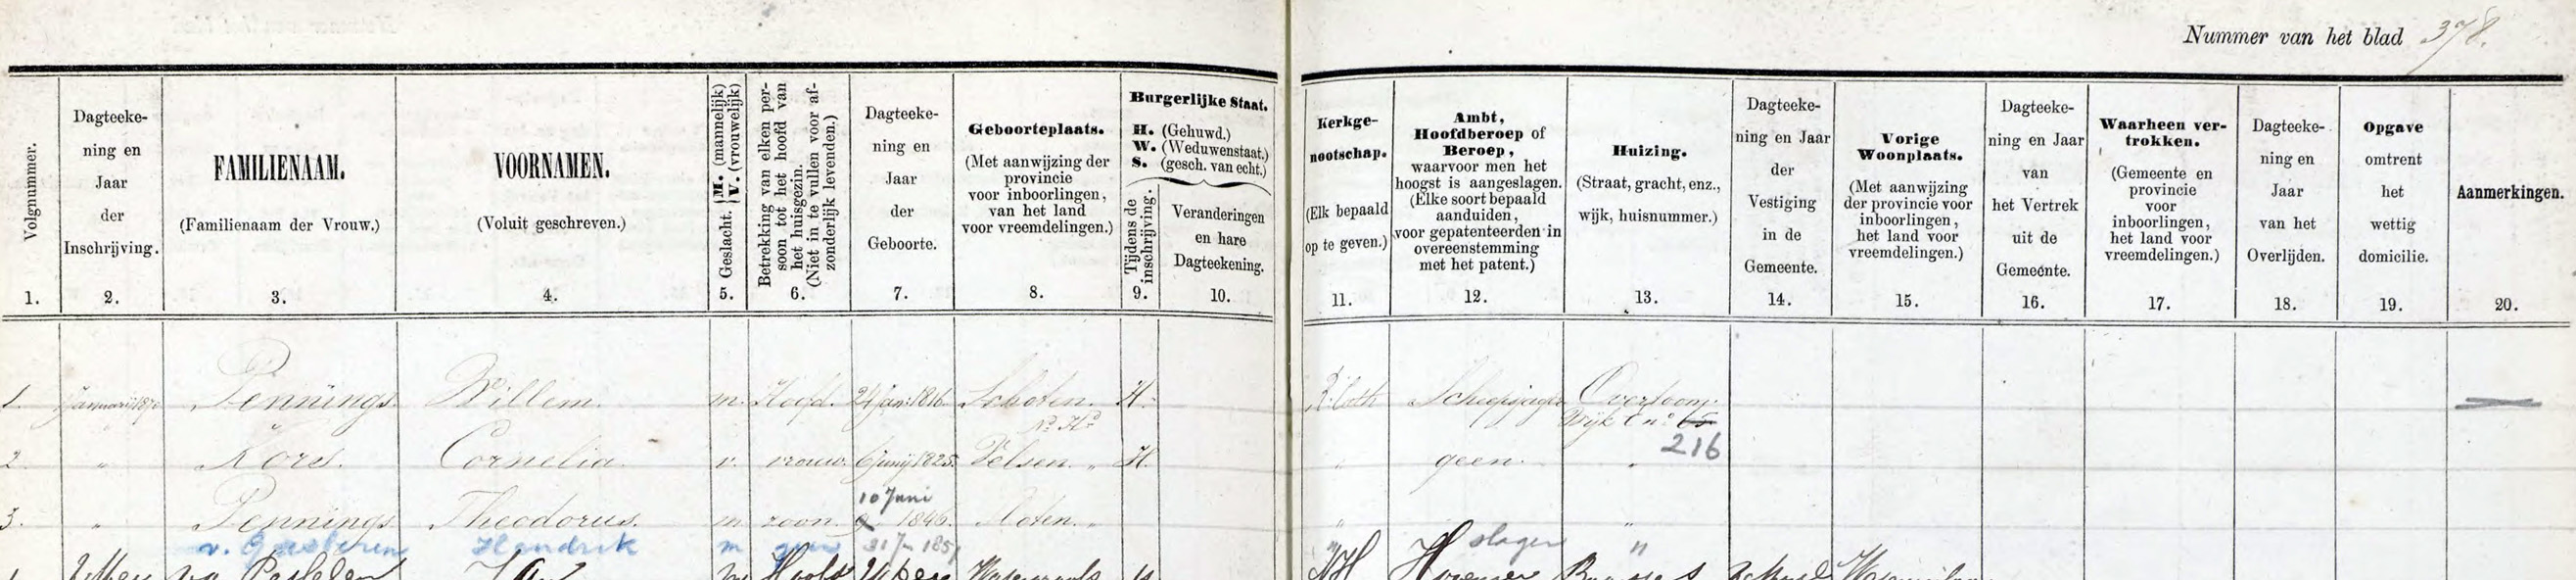 Nummer van het blad 378.
Volgnummer.
1.
Dagteeke-
ning en
Jaar
der
Inschrijving.
2.
FAMILIENAAM.
(Familienaam der Vrouw.)
3.
VOORNAMEN.
(Voluit geschreven.)
4.
Geslacht. { M. (mannelijk)
V. (vrouwelijk)
5.
Betrekking van elken per-
soon tot het hoofd van
het huisgezin.
(Niet in te vullen voor af-
zonderlijk levenden.)
6.
Dagteeke-
ning en
Jaar
der
Geboorte.
7.
Geboorteplaats.
(Met aanwijzing der
provincie
voor inboorlingen,
van het land
voor vreemdelingen.)
8.
Burgerlijke Staat.
H. (Gehuwd.)
W. (Weduwenstaat.)
S. (gesch. van echt.)
Tijdens de
inschrijving.
9.
Veranderingen
en hare
Dagteekening.
10.
Kerkge-
nootschap.
(Elk bepaald
op te geven.)
11.
Ambt,
Hoofdberoep of
Beroep,
waarvoor men het
hoogst is aangeslagen.
(Elke soort bepaald
aanduiden,
voor gepatenteerden in
overeenstemming
met het patent.)
12.
Huizing.
(Straat, gracht, enz.,
wijk, huisnummer.)
13.
Dagteeke-
ning en Jaar
der
Vestiging
in de
Gemeente.
14.
Vorige
Woonplaats.
(Met aanwijzing
der provincie voor
inboorlingen,
het land voor
vreemdelingen.)
15.
Dagteeke-
ning en Jaar
van
het Vertrek
uit de
Gemeente.
16.
Waarheen ver-
trokken.
(Gemeente en
provincie
voor
inboorlingen,
het land voor
vreemdelingen.)
17.
Dagteeke-
ning en
Jaar
van het
Overlijden.
18.
Opgave
omtrent
het
wettig
domicilie.
19.
Aanmerkingen.
20.
1. Januarij 1870 Pennings. Willem. m. Hoofd. 24 Jan: 1816. Schoten. H. R: Cath Scheepsjager Overtoom.
Nd. Hd. Wijk C no. 65
216
2. " Kors. Cornelia. v. vrouw. 6 Junij 1825. Velsen. " H. " geen. "
10 Juni
3. " Pennings Theodorus. m. zoon. 9 1846. Sloten. " " "
Hendrik m 31 1851 " slager "
Hoofd NH